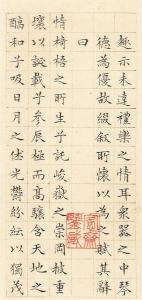 趣亦未達禮樂之情耳衆器之中琴
德為優故綴叙所懷以為之賦其辭
曰
惟椅梧之所生兮託峻嶽之崇岡披重
壤以誕載兮參辰極而高驤含天地之
醇和兮吸日月之休光鬱紛紜以獨茂